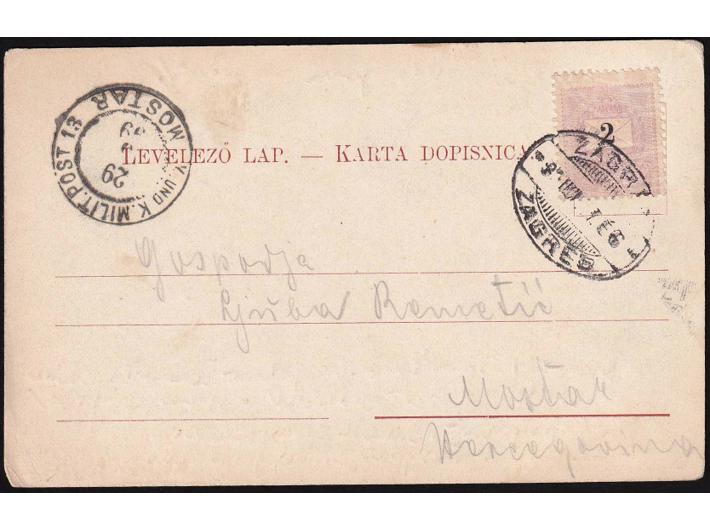 2
ZAGREB
ZAGREB
K. UND K. MILIT. POST 13
MOSTAR
29
99
LEVELEZŐ LAP. — KARTA DOPISNICA
Gospodja
Ljuba Remetić
Mostar
Hercegovina